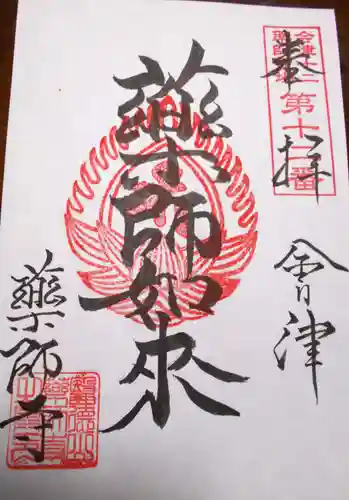 奉拝
会津十二
薬師霊場
第十二番
會津
薬師如来
薬師寺